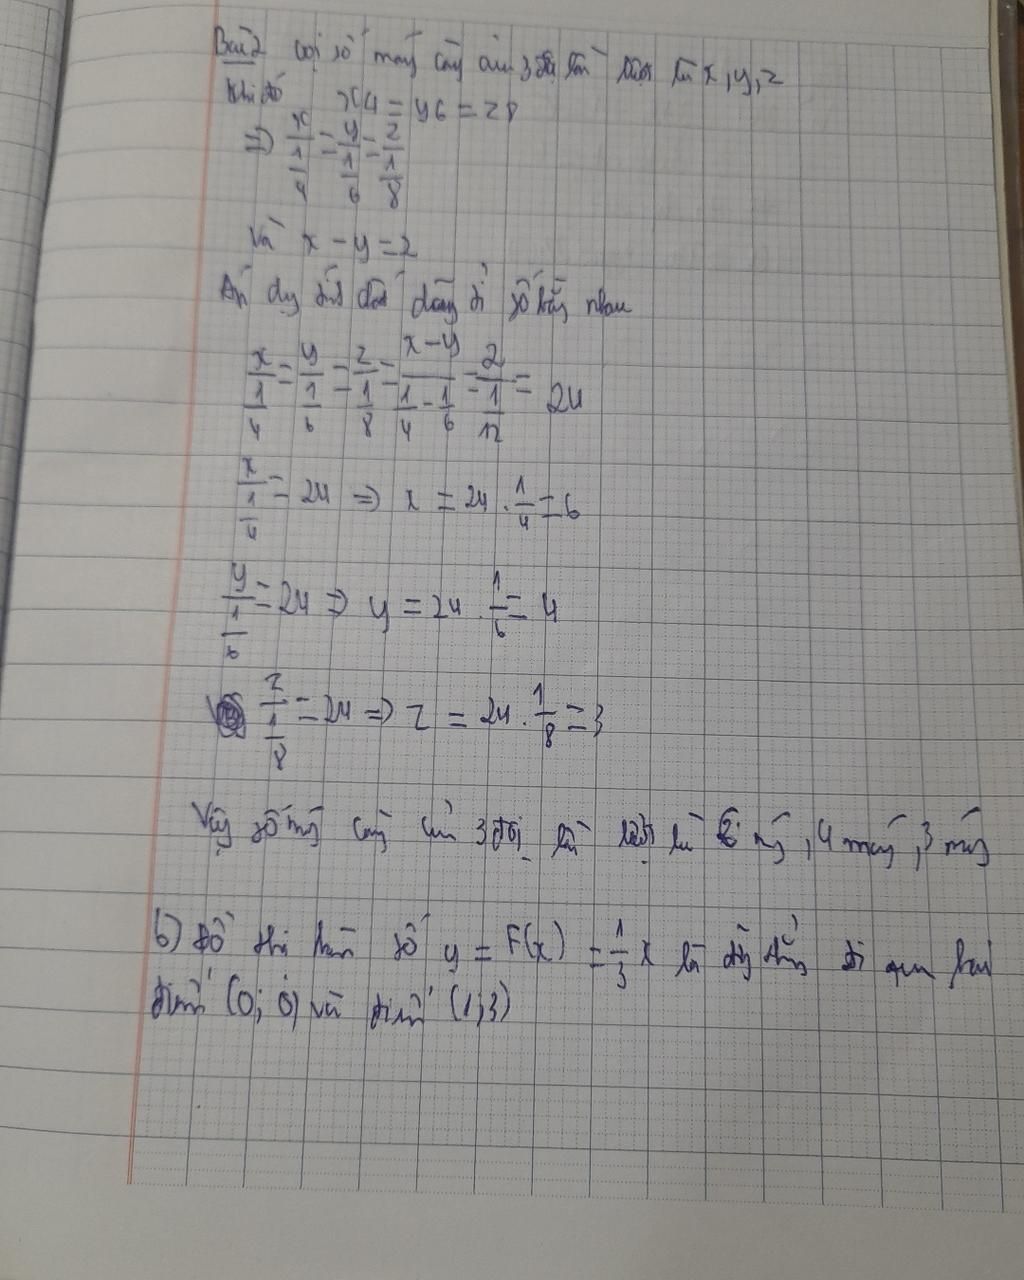 Bài 2 Gọi số máy cày của 3 đội lần lượt là x, y, z
Khi đó x4 = y6 = z8
=> x/(1/4) = y/(1/6) = z/(1/8)
Và x - y = 2
Áp dụng tính chất dãy tỉ số bằng nhau
x/(1/4) = y/(1/6) = z/(1/8) = (x-y)/(1/4 - 1/6) = 2/(1/12) = 24
x/(1/4) = 24 => x = 24 . 1/4 = 6
y/(1/6) = 24 => y = 24 . 1/6 = 4
z/(1/8) = 24 => z = 24 . 1/8 = 3
Vậy số máy cày của 3 đội lần lượt là 6 máy, 4 máy, 3 máy
b) Đồ thị hàm số y = F(x) = 1/3 x là đường thẳng đi qua hai
điểm (0; 0) và điểm (1; 3)